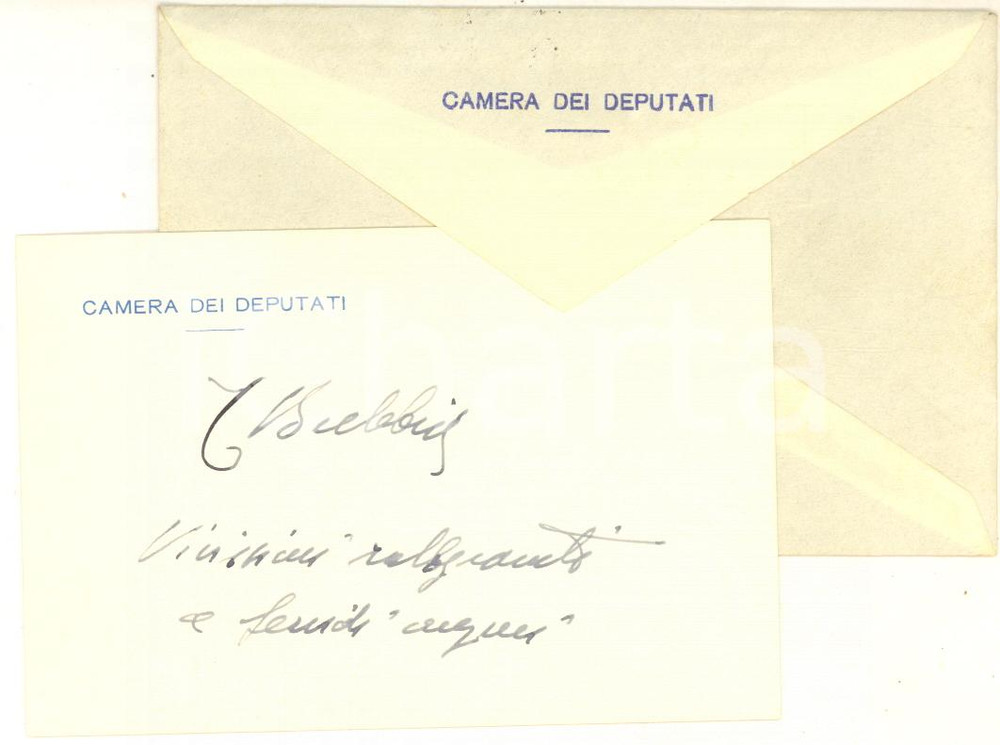 CAMERA DEI DEPUTATI
CAMERA DEI DEPUTATI
Vivissimi rallegramenti
e fervidi auguri